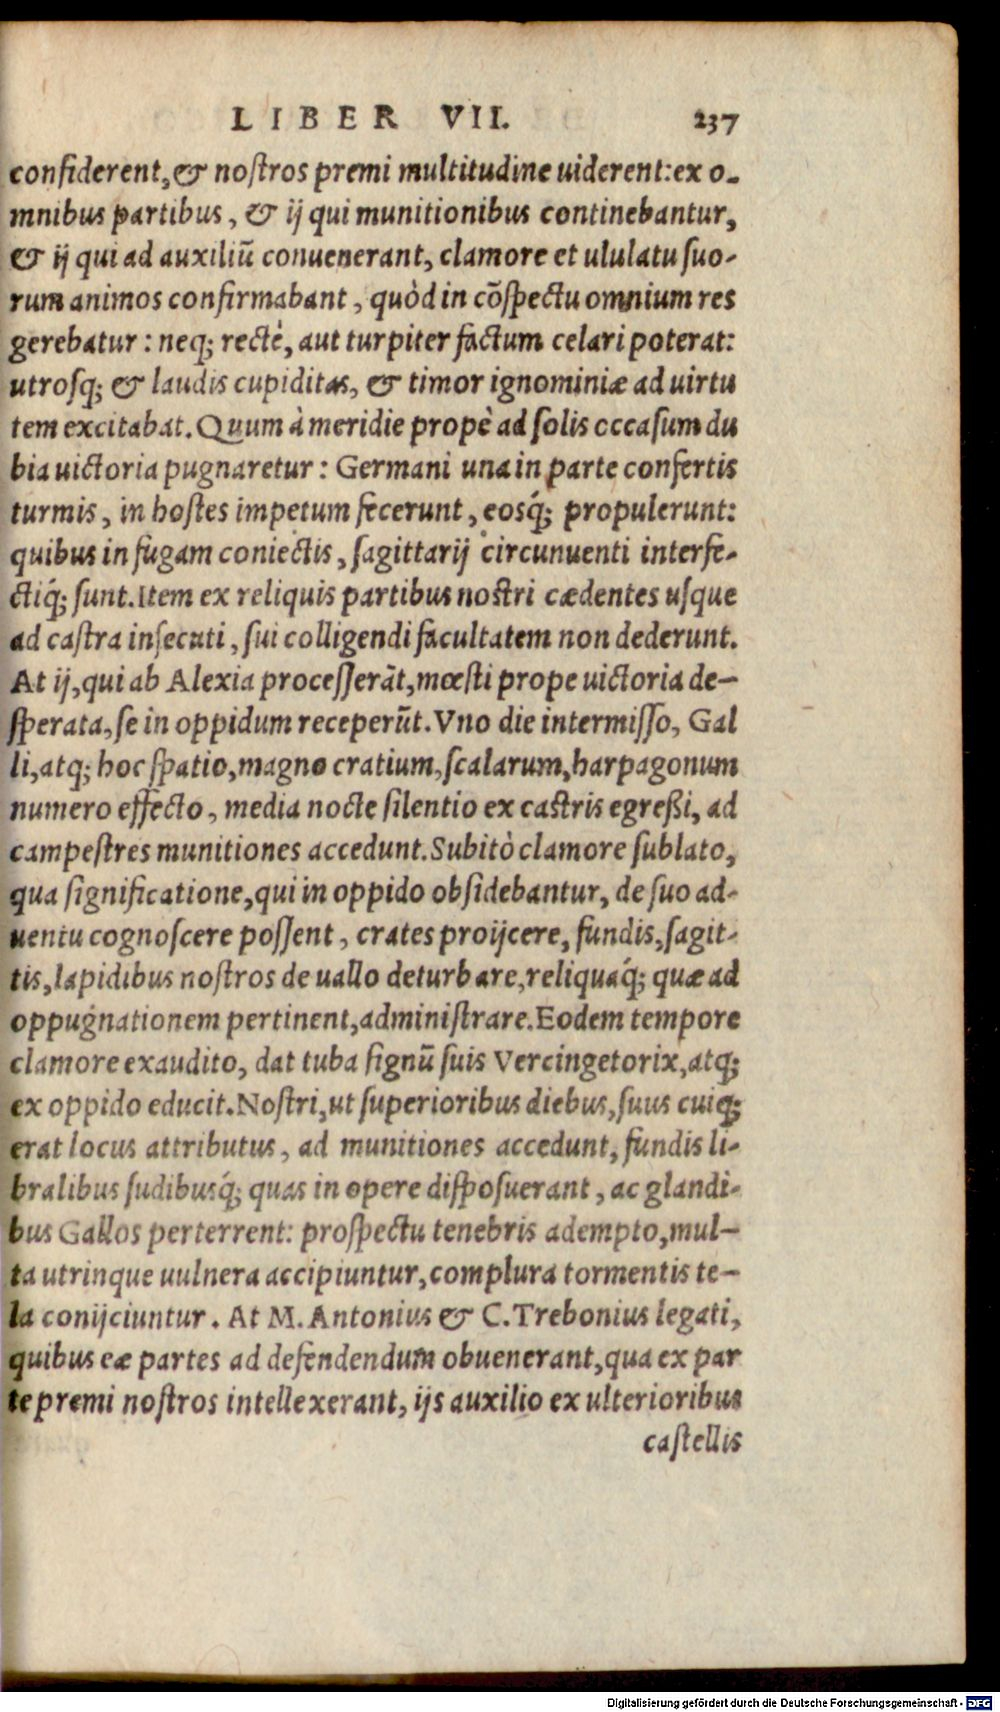 LIBER VII. 237
confiderent, & noſtros premi multitudine uiderent: ex o-
mnibus partibus, & ij qui munitionibus continebantur,
& ij qui ad auxiliū conuenerant, clamore et ululatu ſuo-
rum animos confirmabant, quòd in cōſpectu omnium res
gerebatur: neq; rectè, aut turpiter factum celari poterat:
utroſq; & laudis cupiditas, & timor ignominiæ ad uirtu
tem excitabat. Quum à meridie propè ad ſolis occaſum du
bia uictoria pugnaretur: Germani una in parte confertis
turmis, in hoſtes impetum fecerunt, eosq́; propulerunt:
quibus in fugam coniectis, ſagittarij circunuenti interfe-
ctiq́; ſunt. Item ex reliquis partibus noſtri cædentes uſque
ad caſtra inſecuti, ſui colligendi facultatem non dederunt.
At ij, qui ab Alexia proceſſerāt, mœſti prope uictoria de-
ſperata, ſe in oppidum receperūt. Vno die intermiſſo, Gal
li, atq; hoc ſpatio, magno cratium, ſcalarum, harpagonum
numero effecto, media nocte ſilentio ex caſtris egreßi, ad
campeſtres munitiones accedunt. Subitò clamore ſublato,
qua ſignificatione, qui in oppido obſidebantur, de ſuo ad-
uentu cognoſcere poſſent, crates proijcere, fundis, ſagit-
tis, lapidibus noſtros de uallo deturbare, reliquaq́; quæ ad
oppugnationem pertinent, adminiſtrare. Eodem tempore
clamore exaudito, dat tuba ſignū ſuis Vercingetorix, atq;
ex oppido educit. Noſtri, ut ſuperioribus diebus, ſuus cuiq;
erat locus attributus, ad munitiones accedunt, fundis li-
bralibus ſudibusq́; quas in opere diſpoſuerant, ac glandi-
bus Gallos perterrent: proſpectu tenebris adempto, mul-
ta utrinque uulnera accipiuntur, complura tormentis te-
la conijciuntur. At M. Antonius & C. Trebonius legati,
quibus eæ partes ad defendendum obuenerant, qua ex par
te premi noſtros intellexerant, ijs auxilio ex ulterioribus
caſtellis
Digitalisierung gefördert durch die Deutsche Forschungsgemeinschaft - DFG